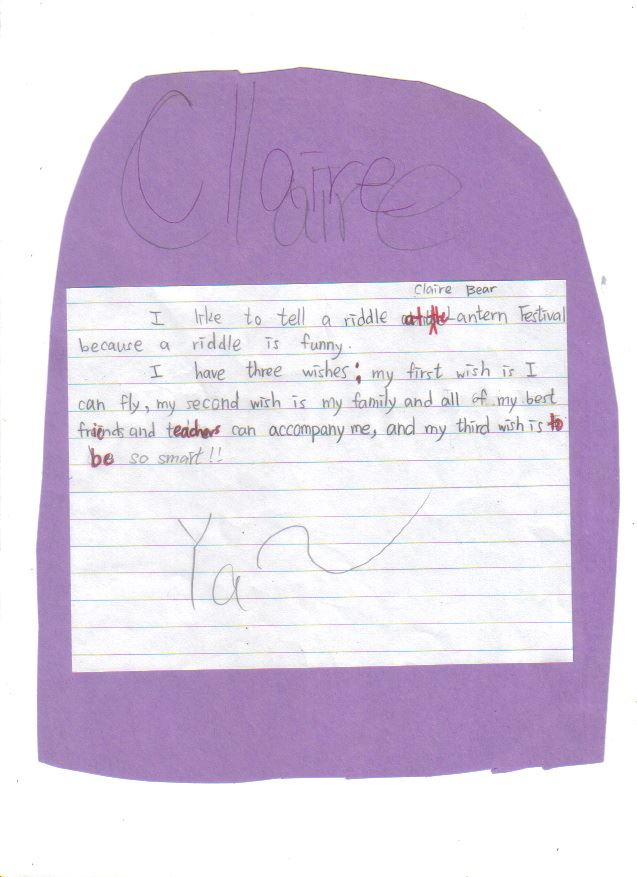 Claire
Claire Bear
I like to tell a riddle at the Lantern Festival
because a riddle is funny.
I have three wishes; my first wish is I
can fly, my second wish is my family and all of my best
friends and teachers can accompany me, and my third wish is to
be so smart!!
Ya